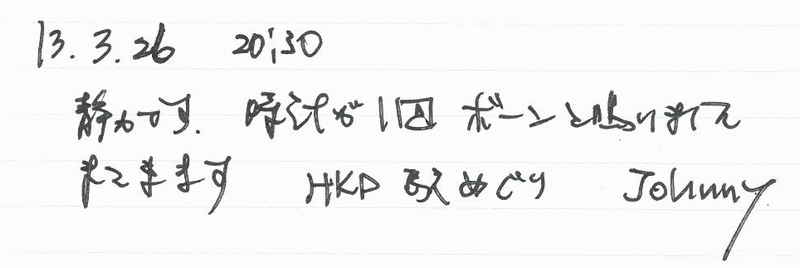 13.3.26 20:30
静かです. 時計が1回 ボーンと鳴りました
またきます HKD 駅めぐり Johnny